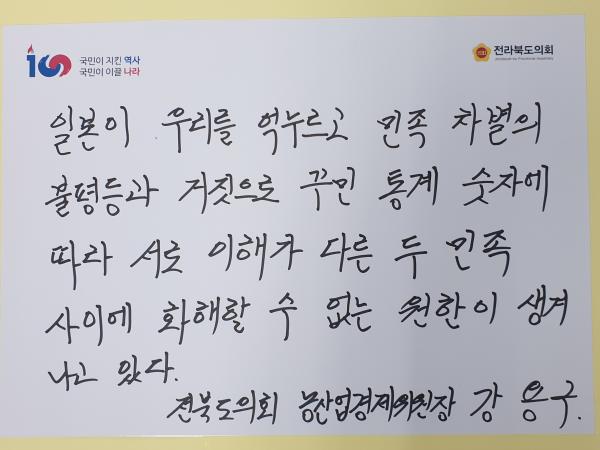 100 국민이 지킨 역사
국민이 이끌 나라
전라북도의회
일본이 우리를 억누르고 민족 차별의
불평등과 거짓으로 꾸민 통계 숫자에
따라 서로 이해가 다른 두 민족
사이에 화해할 수 없는 원한이 생겨
나고 있다.
전북도의회 농산업경제위원장 강용구.